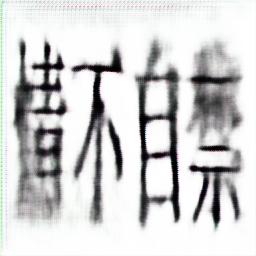 情不自禁